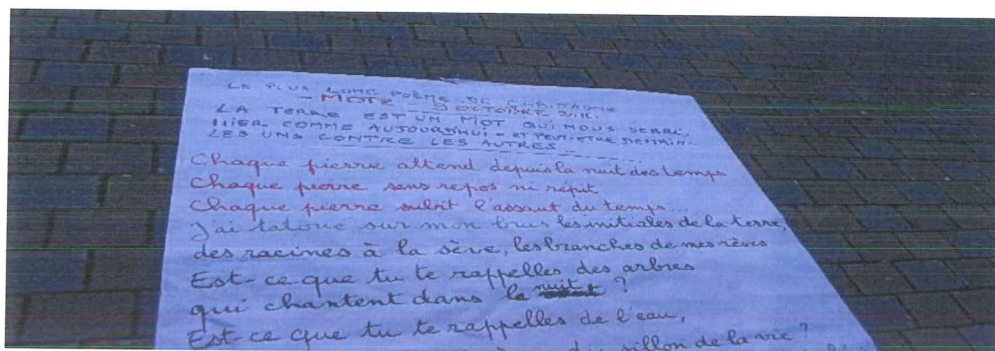 LE PLUS LONG POÈME DE
- MOTZ - 9 OCTOBRE
LA TERRE EST UN MOT QUI NOUS SERRE,
HIER COMME AUJOURD'HUI - ET PEUT-ÊTRE DEMAIN.
LES UNS CONTRE LES AUTRES.
Chaque pierre attend depuis la nuit des temps
Chaque pierre sans repos ni répit
Chaque pierre subit l'assaut du temps...
J'ai tatoué sur mon bras les initiales de la terre,
des racines à la sève, les branches de mes rêves
Est-ce que tu te rappelles des arbres
qui chantent dans la nuit ?
Est-ce que tu te rappelles de l'eau,
du sillon de la vie ?